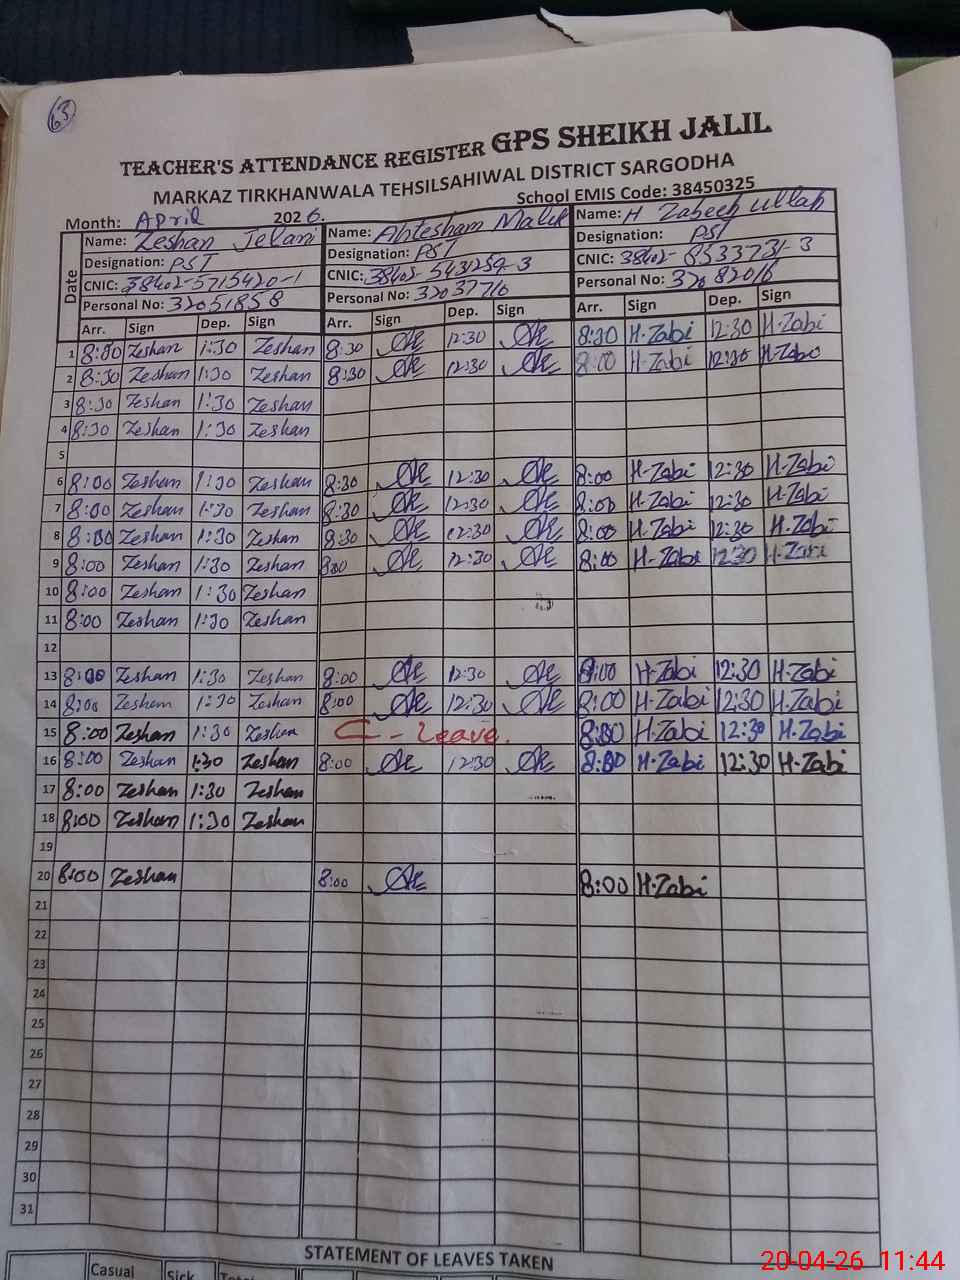 63
TEACHER'S ATTENDANCE REGISTER GPS SHEIKH JALIL
MARKAZ TIRKHANWALA TEHSILSAHIWAL DISTRICT SARGODHA
School EMIS Code: 38450325
Month: April 2026.
Date
Name: Zeshan Jelani Name: Ahtesham Malik Name: H Zabeeh ullah
Designation: PST Designation: PST Designation: PST
CNIC: 38402-5715420-1 CNIC: 38402-5431259-3 CNIC: 38402-8533731-3
Personal No: 32051858 Personal No: 32037716 Personal No: 32082016
Arr. Sign Dep. Sign Arr. Sign Dep. Sign Arr. Sign Dep. Sign
1 8:30 Zeshan 1:30 Zeshan 8:30 12:30 8:30 H-Zabi 12:30 H-Zabi
2 8:30 Zeshan 1:30 Zeshan 8:30 12:30 8:00 H-Zabi 12:30 H-Zabi
3 8:30 Zeshan 1:30 Zeshan
4 8:30 Zeshan 1:30 Zeshan
5
6 8:00 Zeshan 1:30 Zeshan 8:30 12:30 8:00 H-Zabi 12:30 H-Zabi
7 8:00 Zeshan 1:30 Zeshan 8:30 12:30 8:00 H-Zabi 12:30 H-Zabi
8 8:00 Zeshan 1:30 Zeshan 8:30 12:30 8:00 H-Zabi 12:30 H-Zabi
9 8:00 Zeshan 1:30 Zeshan 12:30 8:00 H-Zabi 12:30 H-Zabi
10 8:00 Zeshan 1:30 Zeshan
11 8:00 Zeshan 1:30 Zeshan
12
13 8:00 Zeshan 1:30 Zeshan 8:00 12:30 8:00 H-Zabi 12:30 H-Zabi
14 8:00 Zeshan 1:30 Zeshan 8:00 12:30 8:00 H-Zabi 12:30 H-Zabi
15 8:00 Zeshan 1:30 Zeshan C - Leave. 8:00 H-Zabi 12:30 H-Zabi
16 8:00 Zeshan 1:30 Zeshan 8:00 12:30 8:00 H-Zabi 12:30 H-Zabi
17 8:00 Zeshan 1:30 Zeshan
18 8:00 Zeshan 1:30 Zeshan
19
20 8:00 Zeshan 8:00 8:00 H-Zabi
21
22
23
24
25
26
27
28
29
30
31
STATEMENT OF LEAVES TAKEN
Casual Sick
20-04-26 11:44